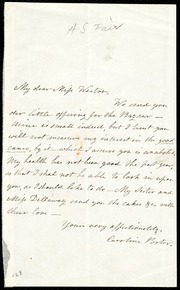 A S Fair
My dear Miss Weston,
We send you
our little offering for the Bazaar –
Mine is small indeed, but I trust you
will not measure my interest in the good
cause, by it – which I assure you is unabated,
My health has not been good the past year,
so that I shall not be able to look in upon
you, as I should like to do – My Sister and
Miss Dellaway send you the cakes &c with
their love –
Yours very affectionately,
Caroline